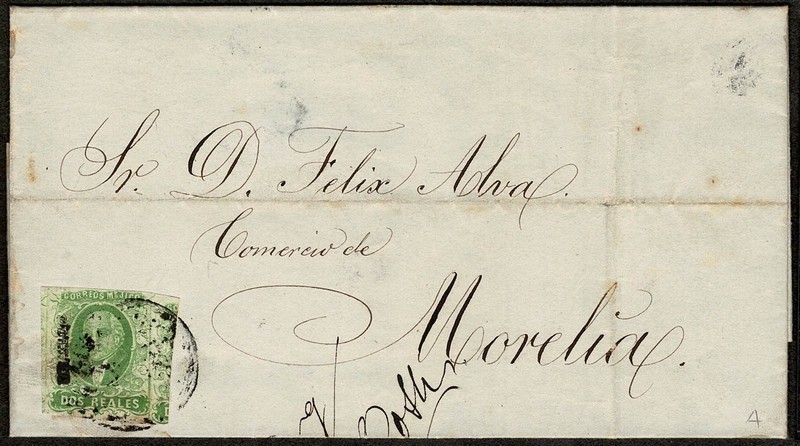 Sr. D. Felix Alva.
Comercio de
Morelia.
CORREOS MEJICO
DOS REALES
A